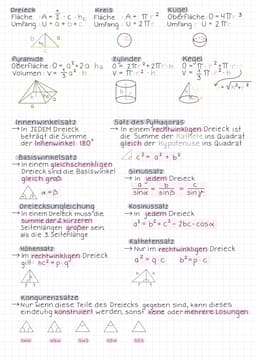 Dreieck
Fläche : A = 1/2 · c · hc
Umfang : U = a + b + c
Kreis
Fläche : A = π r²
Umfang : U = 2πr
Kugel
Oberfläche: O = 4πr²
Umfang : U = 2πr
Pyramide
Oberfläche: O = a² + 2a · h
Volumen : V = 1/3 a² · h
Zylinder
O = 2πr² + 2πr · h
V = πr² · h
Kegel
O = π · r² + π · r · s
V = 1/3 π · r² · h
Innenwinkelsatz
→ In JEDEM Dreieck beträgt die Summe der Innenwinkel: 180°
Satz des Pythagoras
→ In einem rechtwinkligen Dreieck ist die Summe der Kathete ins Quadrat gleich der Hypotenuse ins Quadrat
c² = a² + b²
Basiswinkelsatz
→ In einem gleichschenkligen Dreieck sind die Basiswinkel gleich groß
α = β
Sinussatz
→ In jedem Dreieck
a/sin α = b/sin β = c/sin γ
Dreiecksungleichung
→ In einem Dreieck muss die Summe der 2 kürzeren Seitenlängen größer sein als die 3. Seitenlänge
Kosinussatz
→ In jedem Dreieck
a² = b² + c² - 2bc · cos α
Höhensatz
→ Im rechtwinkligen Dreieck gilt: hc² = p · q
Kathetensatz
→ Nur im rechtwinkligen Dreieck
a² = q · c b² = p · c
Kongruenzsätze
→ Nur wenn diese Teile des Dreiecks gegeben sind, kann dieses eindeutig konstruiert werden, sonst keine oder mehrere Lösungen
sww wsw sws ssw sss